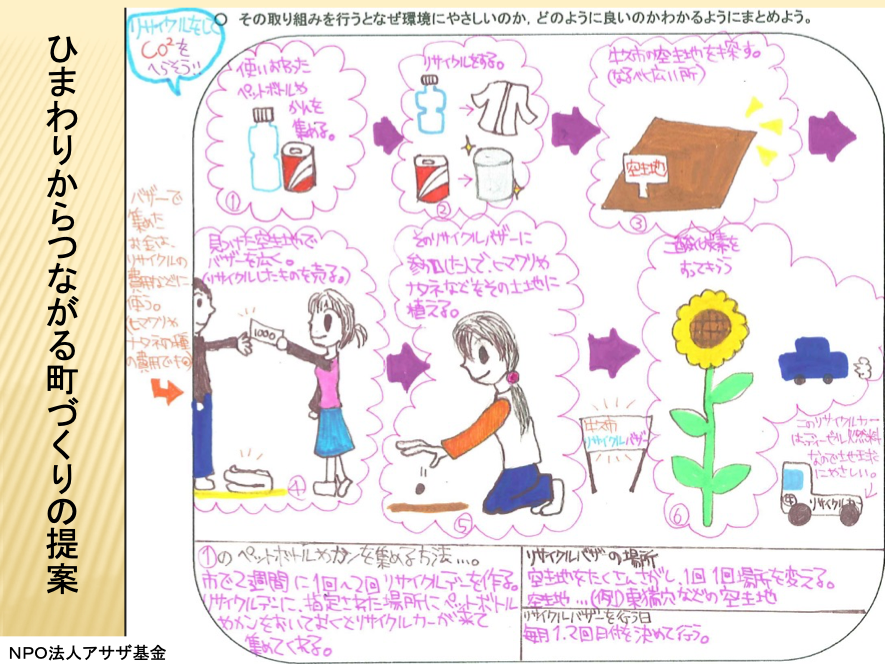 ひまわりからつながる町づくりの提案
NPO法人アサザ基金
○ その取り組みを行うとなぜ環境にやさしいのか，どのように良いのかわかるようにまとめよう。
リサイクルをして
CO²を
へらそう!!
使いおわった
ペットボトルや
かんを
集める。
①
リサイクルをする。
②
牛久市の空き地を探す。
(なるべく広い所)
空き地
③
バザーで
集めた
お金は、
リサイクルの
費用などに
使う。
(ヒマワリや
ナタネの種
の費用でも)
見つけた空き地で
バザーを広く。
(リサイクルしたものを売る。)
1000
④
そのリサイクルバザーに
参加した人で、ヒマワリや
ナタネなどをその土地に
植える。
⑤
牛久市
リサイクルバザー
二酸化炭素を
すってもらう
⑥
このリサイクルカー
はディーゼル燃料
なので地球
にやさしい。
リサイクルカー
①のペットボトルやカンを集める方法…。
市で2週間に1回〜2回リサイクルデーを作る。
リサイクルデーに、指定された場所にペットボトル
やカンをおいておくとリサイクルカーが来て
集めてくれる。
リサイクルバザーの場所
空き地をたくさんさがし、1回1回場所を変える。
空き地…(例)東猯穴などの空き地
リサイクルバザーを行う日
毎月1、2回日付を決めて行う。